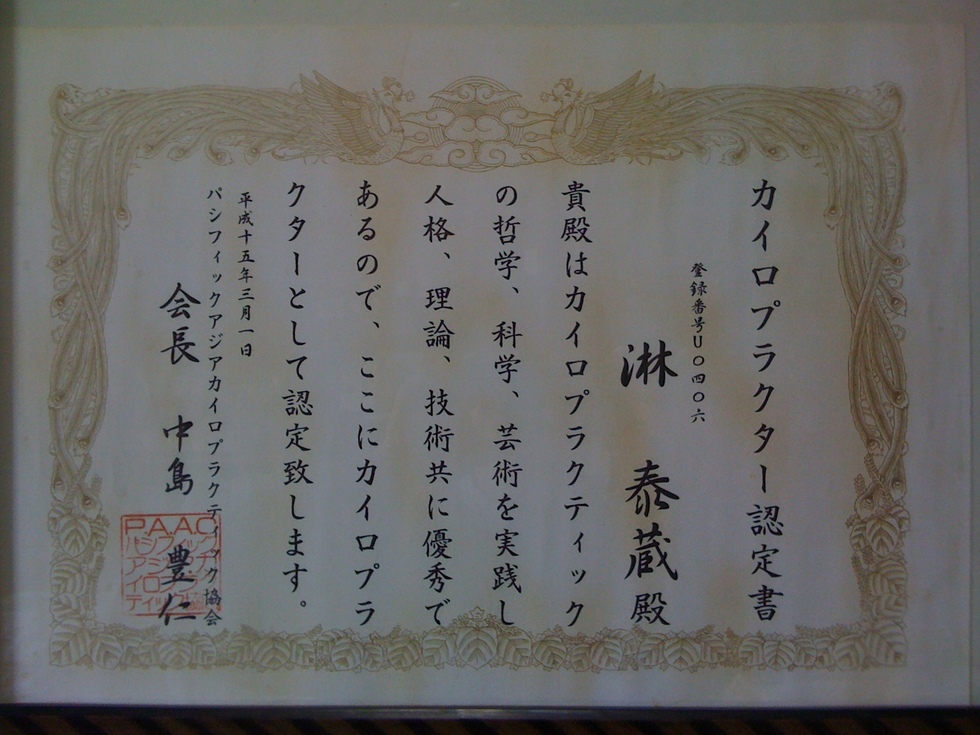 カイロプラクター認定書
登録番号U〇四〇六
淋 泰蔵殿
貴殿はカイロプラクティック
の哲学、科学、芸術を実践し
人格、理論、技術共に優秀で
あるので、ここにカイロプラ
クターとして認定致します。
平成十五年三月一日
パシフィックアジアカイロプラクティック協会
会長 中島 豊仁
P.A.A.C